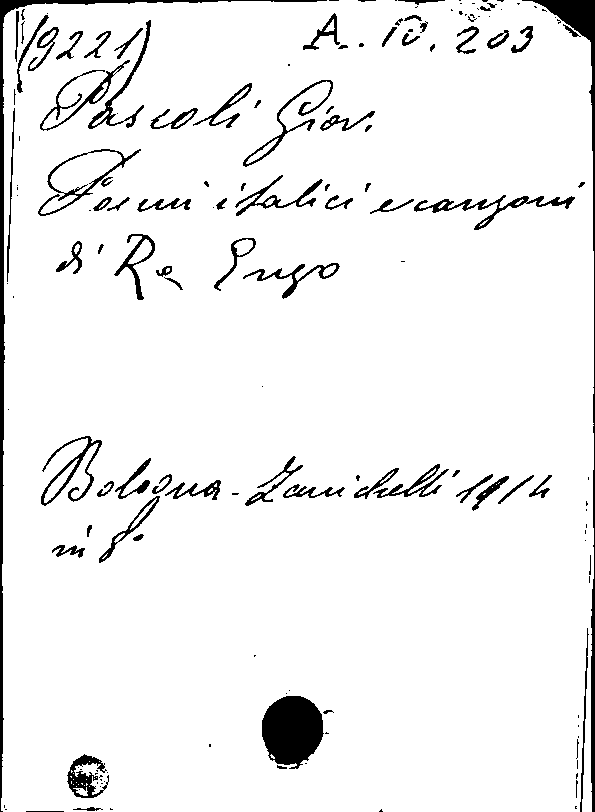 (9221) A. IV. 203
Pascoli Giov.
Poemi italici e canzoni
di Re Enzo
Bologna - Zanichelli 1914
in 8°